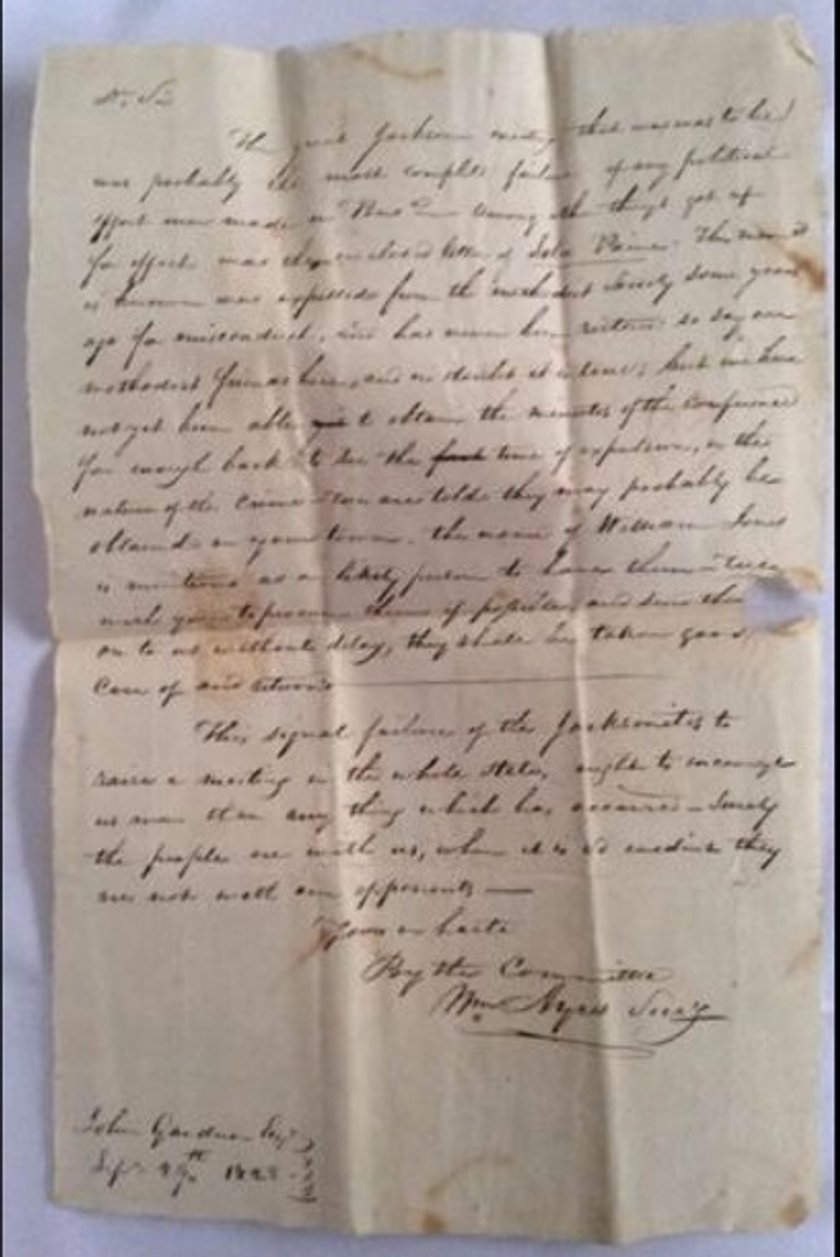 Dr. Sir
The great Jackson meeting that was to be
was probably the most complete failure of any political
effort ever made in among other things got up
for effect was the enclosed letter of This man it
is known was expelled from the methodist Society some years
ago for misconduct, and has never been so say our
methodist friends here, and no doubt it is true; but we have
not yet been able to obtain the minutes of the conference
far enough back to see the time of expulsion, or the
nature of the crime we are told they may probably be
obtained in your town. the name of William Jones
is mentioned as a likely person to have them
wish you to procure them if possible, and send them
on to us without delay, they shall be taken good
care of and returned
This signal failure of the Jacksonites to
raise a meeting in the whole state, ought to encourage
us more than any thing which has occurred – Surely
the people are with us, when it is so evident they
are not with our opponents —
Yours in haste
By the Committee
Wm Ayres Secy
John Gardner Esqr
Sept 1828